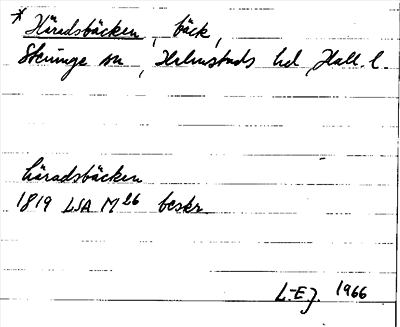 * Häradsbäcken, bäck,
Steninge sn, Halmstads hd, Hall. l.
häradsbäcken
1819 LSA M26 beskr
L-E.J. 1966